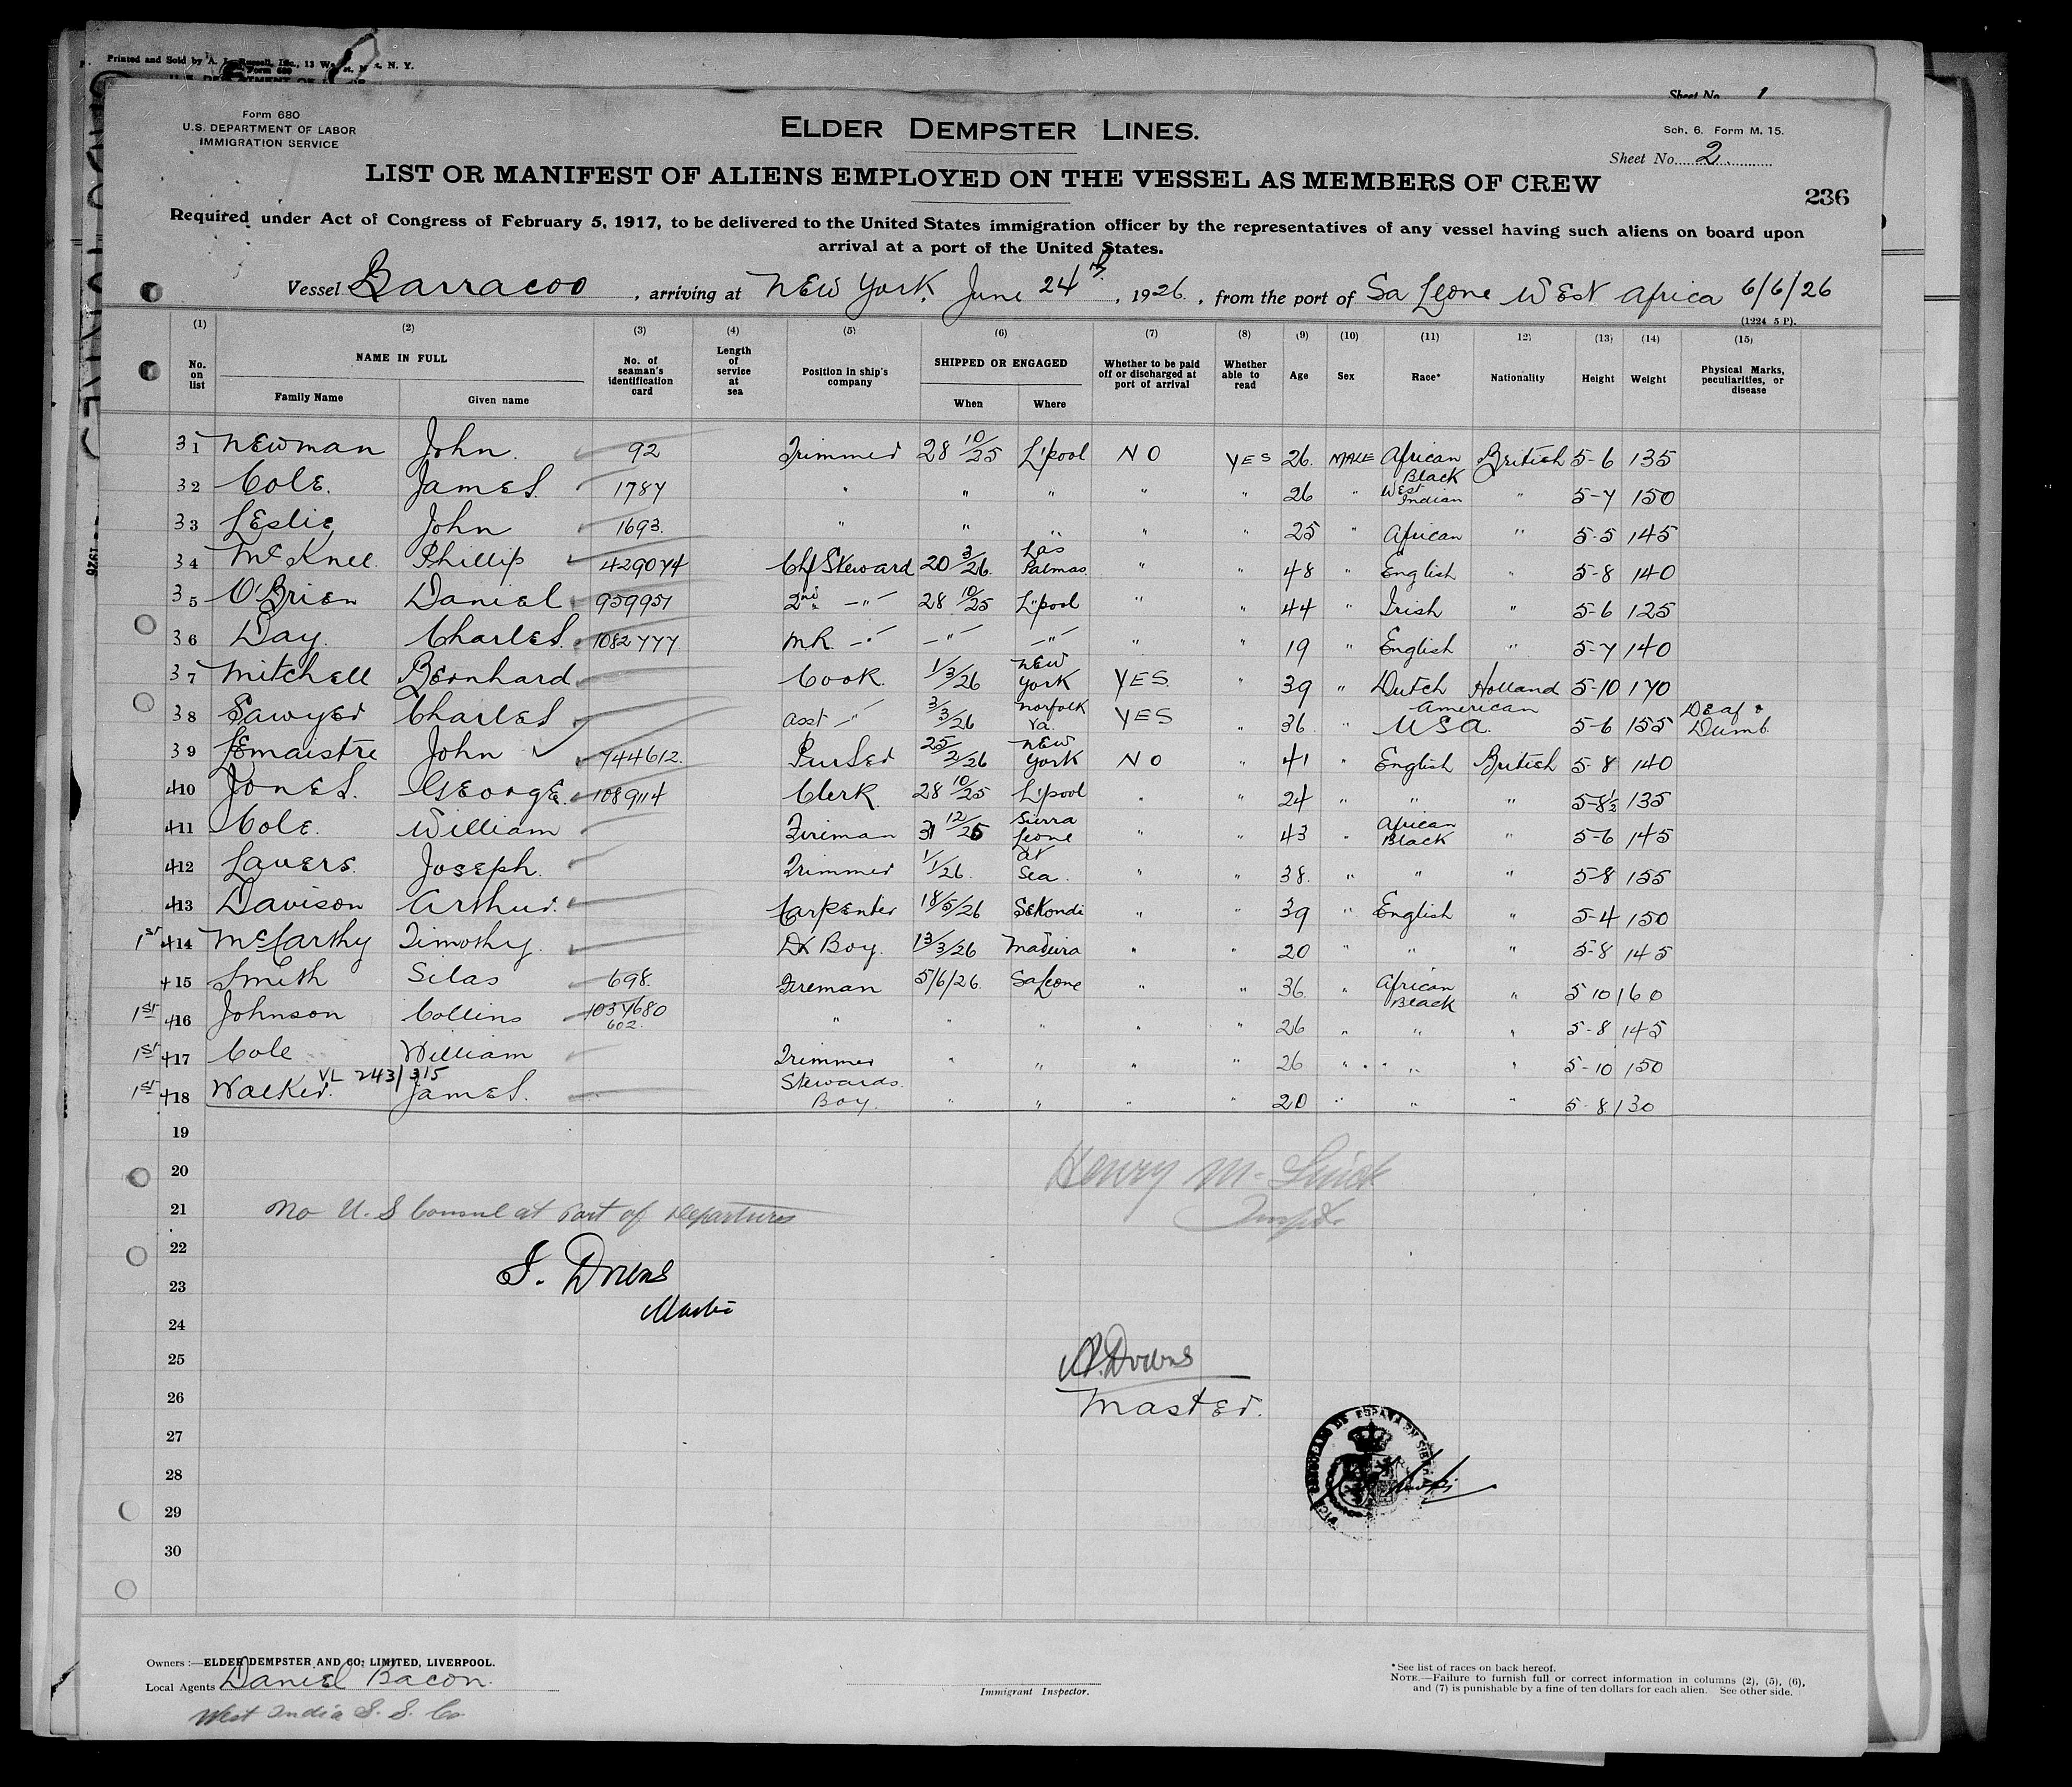 Printed and Sold by A. L. Russell, Inc., 13 Wa t, N. Y.
Form 680
Sheet No. 1
Form 680
U.S. DEPARTMENT OF LABOR
IMMIGRATION SERVICE
ELDER DEMPSTER LINES.
Sch. 6. Form M. 15.
Sheet No. 2
LIST OR MANIFEST OF ALIENS EMPLOYED ON THE VESSEL AS MEMBERS OF CREW
236
Required under Act of Congress of February 5, 1917, to be delivered to the United States immigration officer by the representatives of any vessel having such aliens on board upon
arrival at a port of the United States.
Vessel Barracoo, arriving at New York, June 24th, 1926, from the port of Sa Leone West Africa 6/6/26
(1224 5 P).
(1) (2) (3) (4) (5) (6) (7) (8) (9) (10) (11) 12) (13) (14) (15)
No. on list NAME IN FULL Family Name Given name No. of seaman's identification card Length of service at sea Position in ship's company SHIPPED OR ENGAGED When Where Whether to be paid off or discharged at port of arrival Whether able to read Age Sex Race* Nationality Height Weight Physical Marks, peculiarities, or disease
31 Newman John. 92 Trimmer 28 10/25 L'pool NO YES 26. MALE African Black British 5-6 135
32 Cole. James. 1787 " " " " " 26 " West Indian " 5-7 150
33 Leslie John 1693. " " " " " 25 " African " 5-5 145
34 McKnee Phillip 429074 Chf Steward 20 3/26. Las Palmas " " 48 " English " 5-8 140
35 O'Brien Daniel 959951 2nd -"- 28 10/25 L'pool " " 44 " Irish " 5-6 125
36 Day. Charles. 1082777 MR. -"- -"- -"- " " 19 " English " 5-7 140
37 Mitchell Bernhard Cook. 1/3/26 New York YES. " 39 " Dutch Holland 5-10 170
38 Sawyer Charles asst -"- 3/3/26 Norfolk Va. YES " 36. " American USA. 5-6 155 Deaf & Dumb.
39 Lemaistre John 744612. Purser 25/2/26 New York NO " 41 " English British 5-8 140
410 Jones. George. 1089114 Clerk 28 10/25 L'pool " " 24 " " " 5-8½ 135
411 Cole. William Fireman 31 12/25 Sierra Leone " " 43 " African Black " 5-6 145
412 Lavers. Joseph. Trimmer 1/1/26. at Sea. " " 38. " " " 5-8 155
413 Davison Arthur. Carpenter 18/5/26 Sekondi " " 39 " English " 5-4 150
1st 414 McCarthy Timothy. Dk Boy. 13/3/26 Madeira " " 20 " " " 5-8 145
415 Smith Silas 698. Fireman 5/6/26. Sa Leone " " 36. " African Black " 5 10 160
1st 416 Johnson Collins 1037680 602. " " " " " 26 " " " 5-8 145
1st 417 Cole William Trimmer " " " " 26 " " " 5-10 150
VL 243/315
1st 418 Walker. James. Stewards Boy. " " " " 20 " " " 5-8 130
19
20
Henry M.
21 No U.S Consul at Port of Departure
22
23 Downs
24 Master
25 Downs
26 Master.
27
28
29
30
VICE CONSULADO DE ESPAÑA EN SIERRA
Owners :—ELDER DEMPSTER AND CO; LIMITED, LIVERPOOL.
Local Agents Daniel Bacon.
West India S. S. Co
Immigrant Inspector.
*See list of races on back hereof.
NOTE.—Failure to furnish full or correct information in columns (2), (5), (6),
and (7) is punishable by a fine of ten dollars for each alien. See other side.